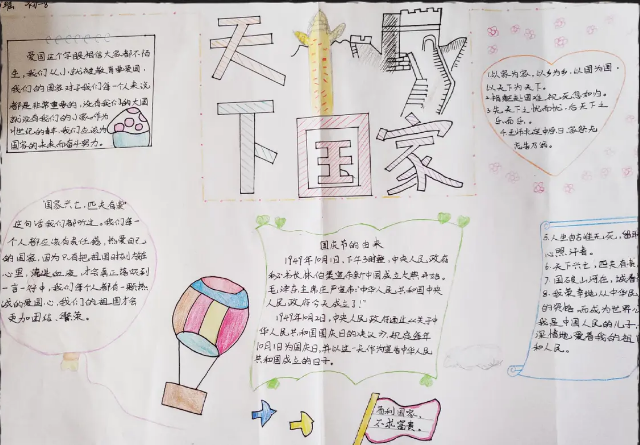 天下
国家
爱国这个字眼相信大家都不陌
生,我们从小就被教育要爱国,
我们的国家对于我们每一个人来说
都是非常重要的,没有我们的大国
就没有我们的小家,作为
国家的未来而奋斗努力。
1.以家为家,以乡为乡,以国为国,
以天下为天下。
2.捐躯赴国难,视死忽如归。
3.先天下之忧而忧,后天下之
乐而乐。
4.王师北定中原日,家祭无
忘告乃翁。
国家兴亡,匹夫有责
这句话我们都听过。我们每一
个人都应该有责任感,热爱自己
的国家,因为只有把祖国时刻装在
心里,
一言一行中,我们每个人都有一颗热
诚的爱国心,我们的祖国才会
更加团结、繁荣。
国庆节的由来
1949年10月1日,下午3时整,中央人民政府
秘书长林伯渠宣布新中国成立大典开始。
毛泽东主席庄严宣布:“中华人民共和国中央
人民政府今天成立了!”
1949年10月2日,中央人民政府通过《关于中
华人民共和国国庆日的决议》,规定每年
10月1日为国庆日,并以这一天作为宣告中华人民
共和国成立的日子。
5.人生自古谁无死,留取
心照汗青。
6.天下兴亡,匹夫有责
7.国破山河在,城春
8.我荣幸地以中华民
的资格,而成为世界公
我是中国人民的儿子
深情地爱着我的祖
和人民。
苟利国家,
不求富贵。